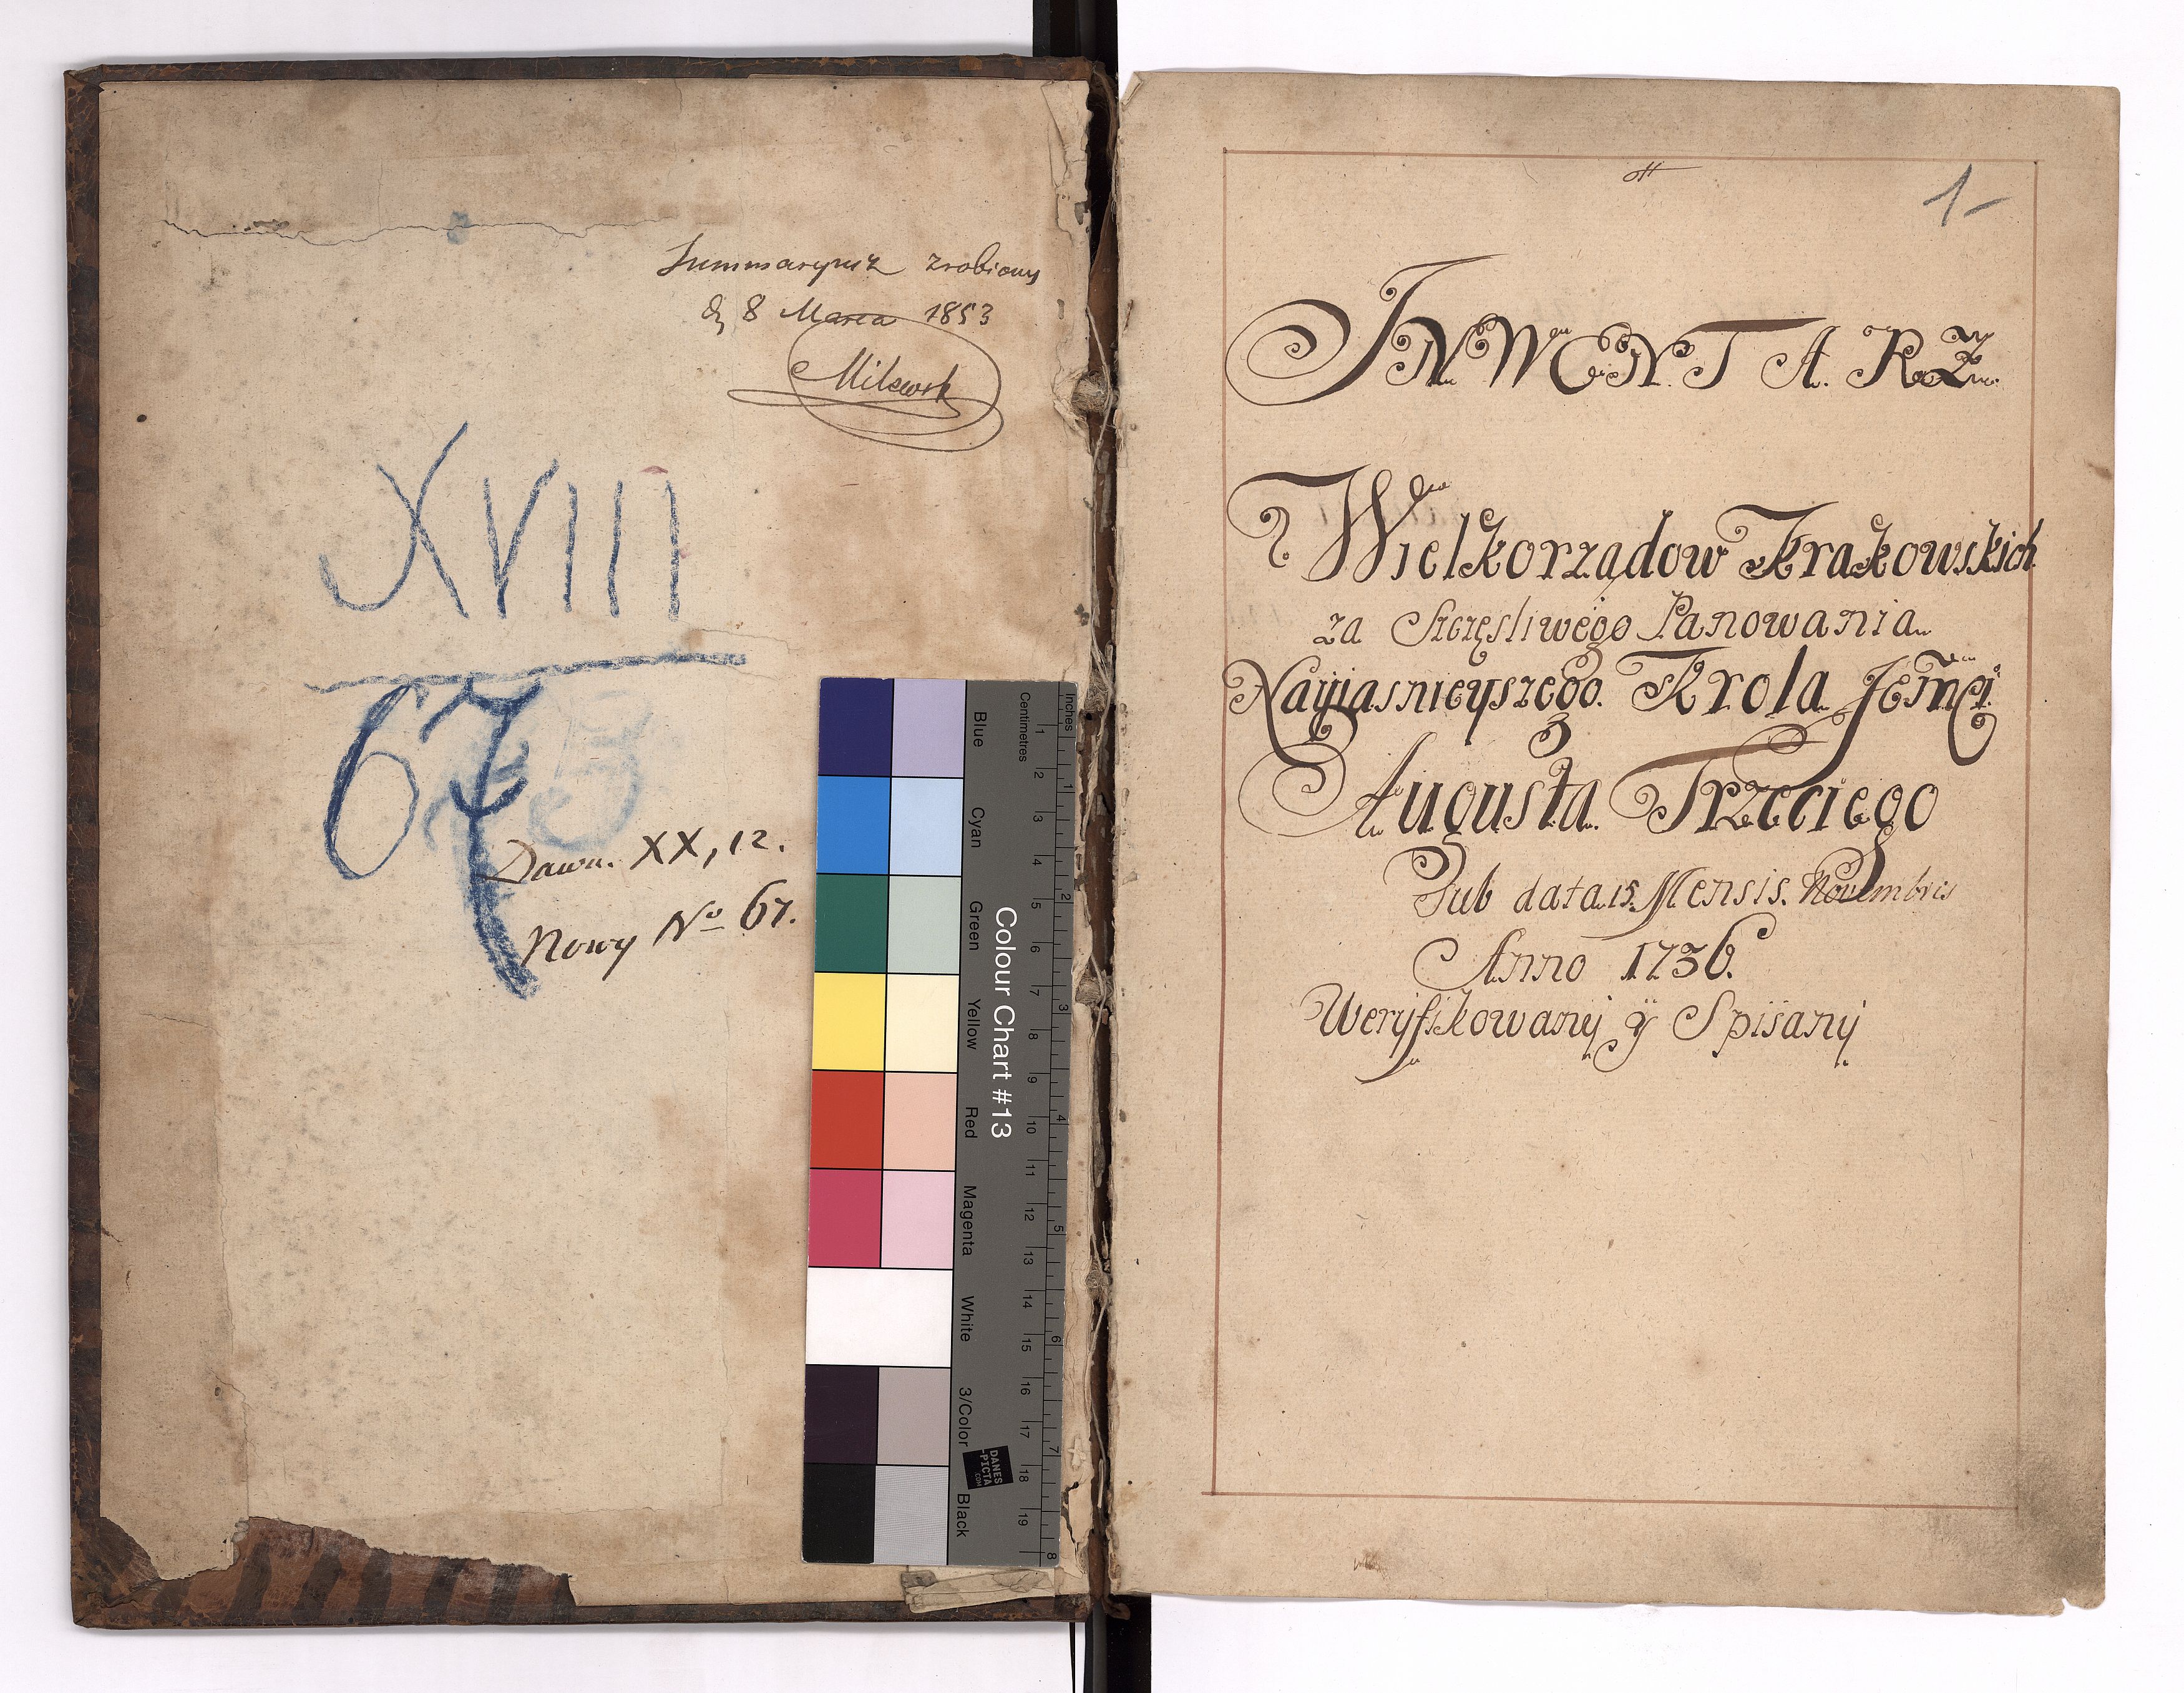 Summaryusz zrobiony
d. 8 Marca 1853
Milewsk
XVIII
67
Dawn. XX, 12.
Nowy No 67.
Inches
Centimetres
1 2 3 4 5 6 7 8 9 10 11 12 13 14 15 16 17 18 19
1 2 3 4 5 6 7 8
Colour Chart #13
Blue
Cyan
Green
Yellow
Red
Magenta
White
3/Color
Black
DANES
-PICTA
.COM
1-
INWENTARZ
Wielkorządow Krakowskich
za Szczęsliwego Panowania
Nayiasnieyszego Krola Jemci
Augusta Trzeciego
Sub data 15 Mensis Novembris
Anno 1736.
Weryfikowany y Spisany